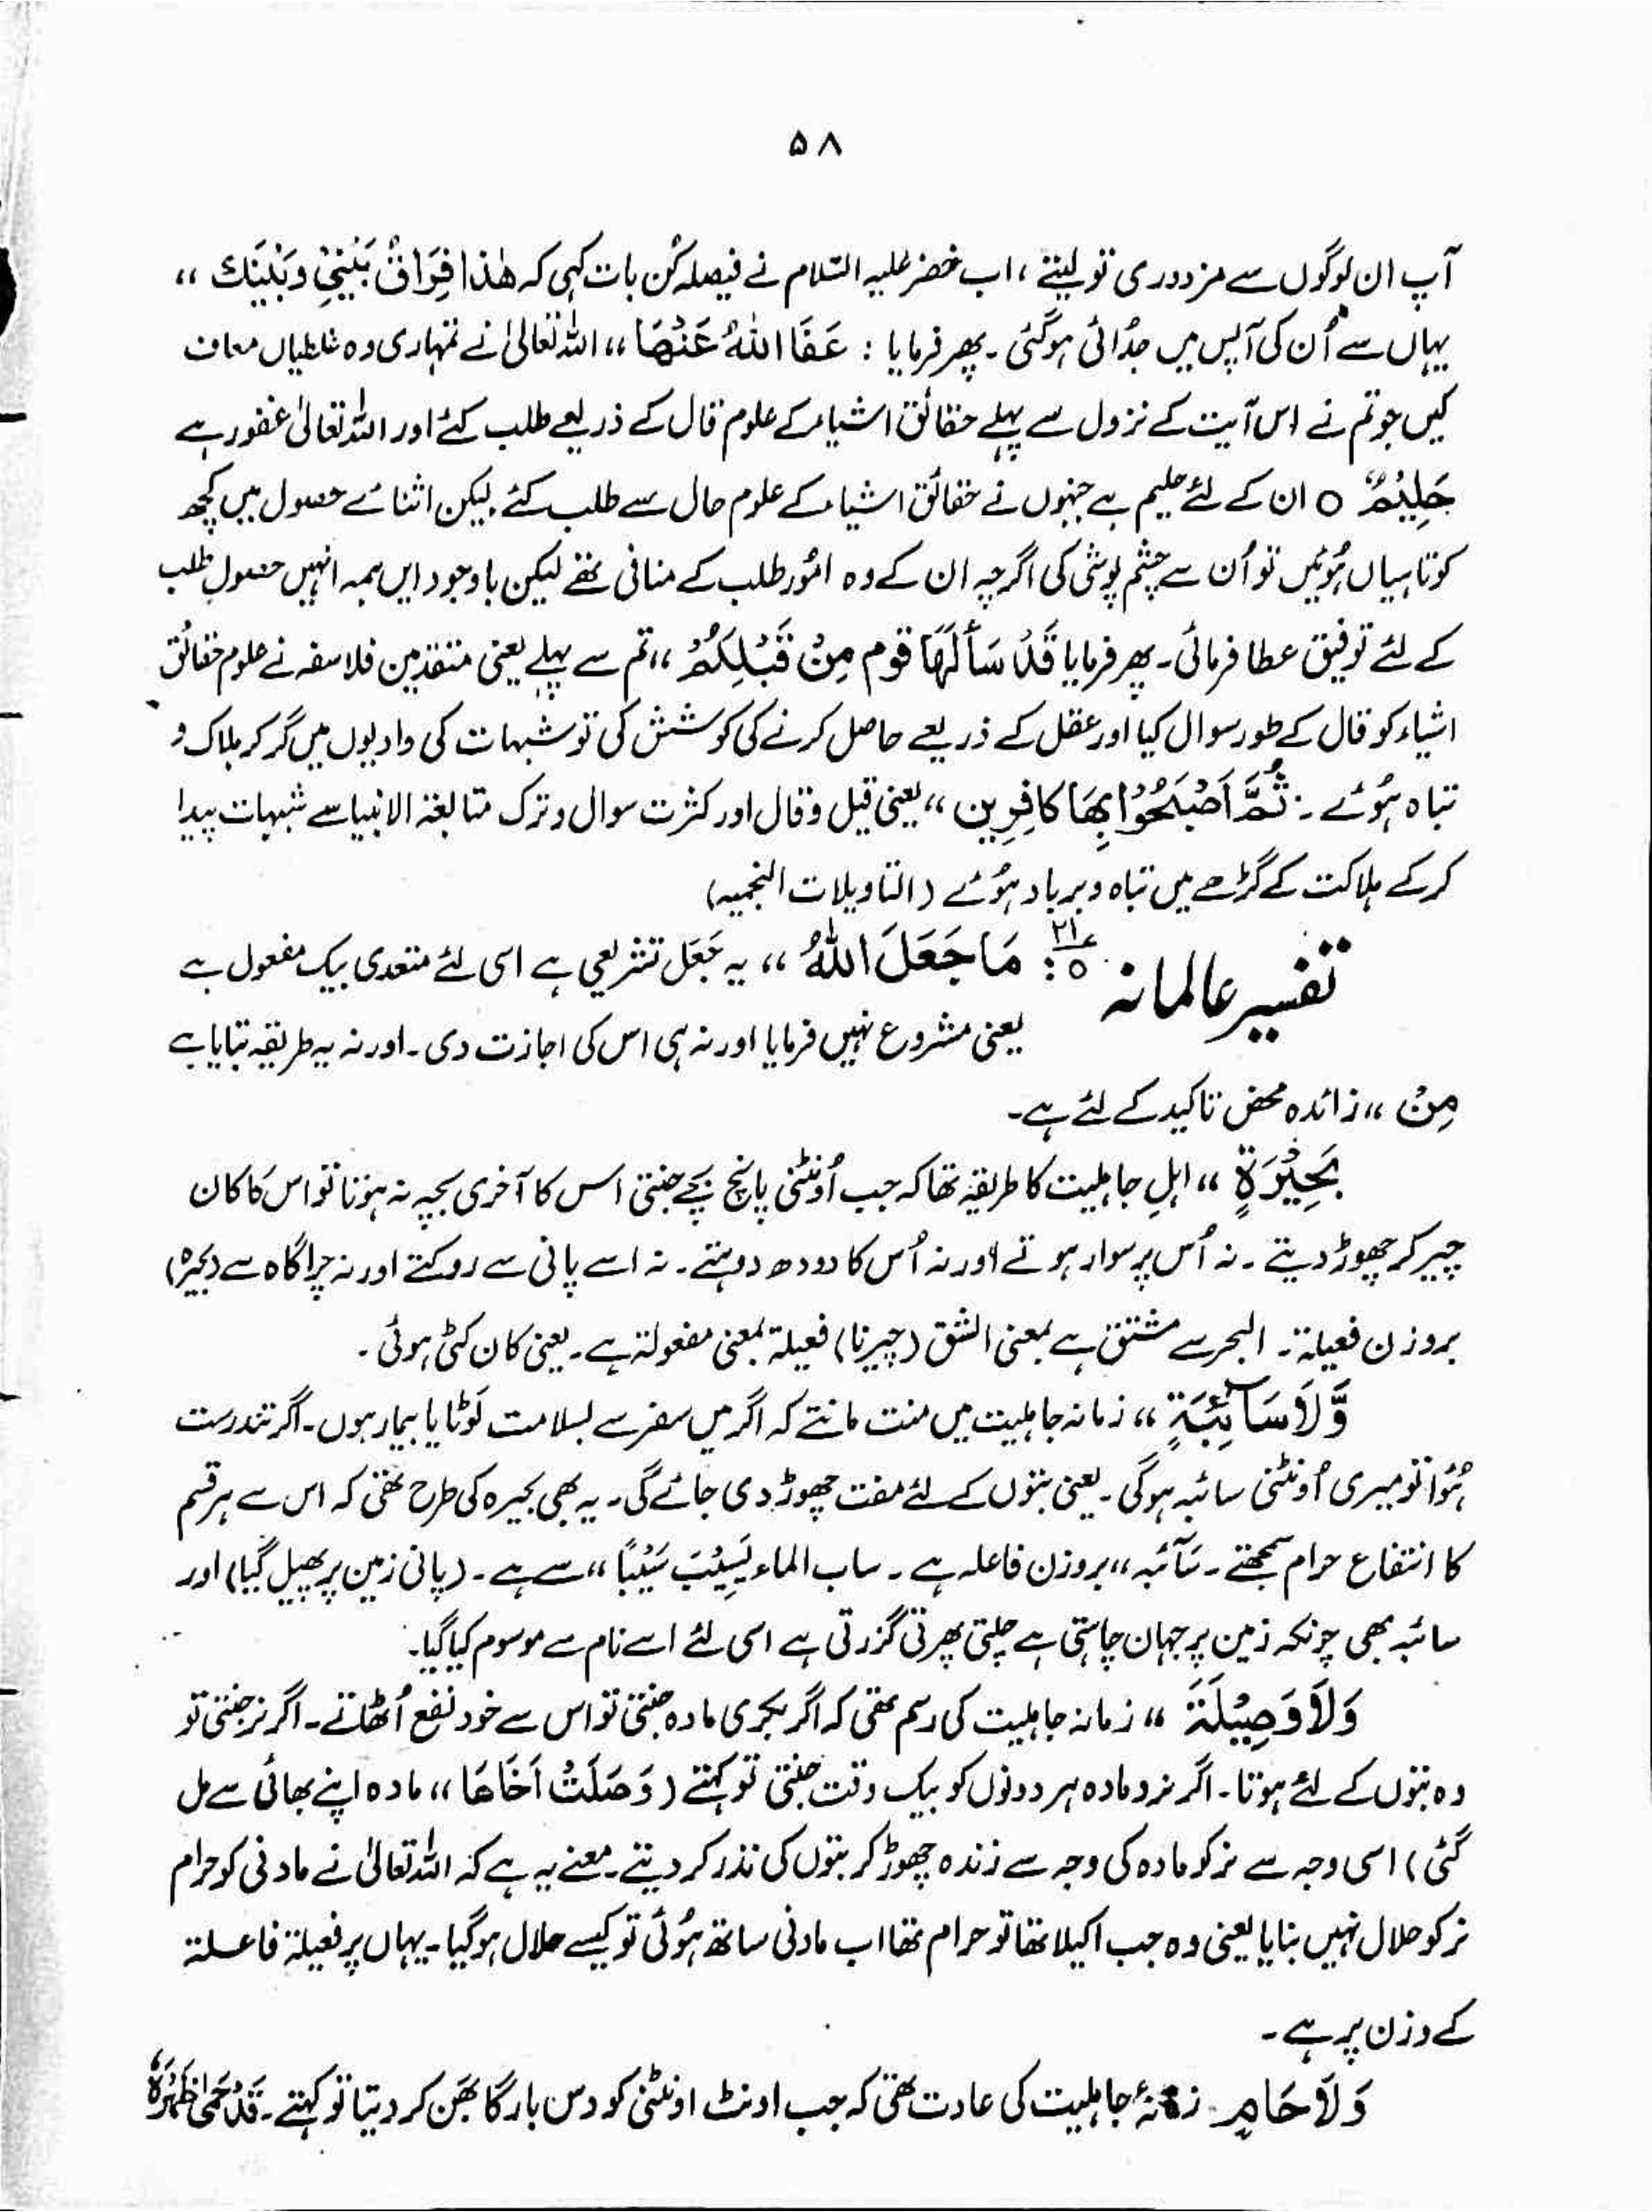 ۵۸
آپ ان لوگوں سے مزدوری تو لیتے ، اب خضر علیہ السّلام نے فیصلہ کُن بات کہی کہ هٰذا فِرَاقُ بَيْنِيْ وَبَيْنِكَ ،،
یہاں سے اُن کی آپس میں جُدائی ہوگئی ۔ پھر فرمایا : عَفَا اللّٰهُ عَنْهَا ،، اللہ تعالیٰ نے تمہاری وہ غلطیاں معاف
کیں جو تم نے اس آیت کے نزول سے پہلے حقائق اشیاء کے علوم قال کے ذریعے طلب کئے اور اللہ تعالیٰ غفور ہے
حَلِيْمٌ ○ ان کے لئے حلیم ہے جنہوں نے حقائق اشیاء کے علوم حال سے طلب کئے لیکن اثنائے حصول میں کچھ
کوتاہیاں ہُوئیں تو اُن سے چشم پوشی کی اگرچہ ان کے وہ امُور طلب کے منافی تھے لیکن باوجود ایں ہمہ انہیں حصولِ طلب
کے لئے توفیق عطا فرمائی ۔ پھر فرمایا قَدْ سَأَلَهَا قوم مِنْ قَبْلِكُمْ ،، تم سے پہلے یعنی متقدمین فلاسفہ نے علوم حقائق
اشیاء کو قال کے طور سوال کیا اور عقل کے ذریعے حاصل کرنے کی کوشش کی تو شبہات کی وادیوں میں گر کر ہلاک و
تباہ ہُوئے ۔ ثُمَّ اَصْبَحُوْا بِهَا كافِرِين ،، یعنی قیل و قال اور کثرت سوال و ترک متابعۃ الانبیا سے شبہات پیدا
کر کے ہلاکت کے گڑھے میں تباہ و برباد ہوُئے (التاویلات النجمیہ)
تفسیر عالمانہ : مَا جَعَلَ اللّٰهُ ،، یہ جَعَل تشریعی ہے اسی لئے متعدی بیک مفعول ہے
یعنی مشروع نہیں فرمایا اور نہ ہی اس کی اجازت دی ۔ اور نہ یہ طریقہ بتایا ہے
مِنْ ،، زائدہ محض تاکید کے لئے ہے ۔
بَحِيْرَةٍ ،، اہلِ جاہلیت کا طریقہ تھا کہ جب اُونٹنی پانچ بچے جنتی اس کا آخری بچہ نہ ہوتا تو اس کا کان
چیر کر چھوڑ دیتے ۔ نہ اُس پر سوار ہوتے اور نہ اُس کا دودھ دوہتے ۔ نہ اسے پانی سے روکتے اور نہ چراگاہ سے (بحیرہ)
بروزن فعیلۃ ۔ البحر سے مشتق ہے بمعنی الشق (چیرنا) فعیلۃ بمعنی مفعولۃ ہے ۔ یعنی کان کٹی ہوئی ۔
وَّلَا سَآئِبَةٍ ،، زمانہ جاہلیت میں منت مانتے کہ اگر میں سفر سے بسلامت لَوٹا یا بیمار ہوں ۔ اگر تندرست
ہُوَا تو میری اُونٹنی سائبہ ہوگی ۔ یعنی بتوں کے لئے مفت چھوڑ دی جائے گی ۔ یہ بھی بحیرہ کی طرح تھی کہ اس سے ہر قسم
کا انتفاع حرام سمجھتے ۔ سَآئبہ ،، بروزن فاعلہ ہے ۔ ساب الماء یَسِیْبَ سَیْبًا ،، سے ہے ۔ (پانی زمین پر پھیل گیا) اور
سائبہ بھی چونکہ زمین پر جہاں چاہتی ہے چلتی پھرتی گزرتی ہے اسی لئے اسے نام سے موسوم کیا گیا ۔
وَلَا وَصِيْلَةَ ،، زمانہ جاہلیت کی رسم تھی کہ اگر بکری مادہ جنتی تو اس سے خود نفع اُٹھاتے ۔ اگر نر جنتی تو
وہ بتوں کے لئے ہوتا ۔ اگر نر و مادہ ہر دونوں کو بیک وقت جنتی تو کہتے (وَصَلَتْ اَخَاهَا ،، مادہ اپنے بھائی سے مل
گئی) اسی وجہ سے نر کو مادہ کی وجہ سے زندہ چھوڑ کر بتوں کی نذر کر دیتے ۔ معنے یہ ہے کہ اللہ تعالیٰ نے مادنی کو حرام
نر کو حلال نہیں بنایا یعنی وہ جب اکیلا تھا تو حرام تھا اب مادنی ساتھ ہُوئی تو کیسے حلال ہوگیا ۔ یہاں پر فعیلۃ فاعلۃ
کے وزن پر ہے ۔
وَلَا حَامٍ ۔ زمانۂ جاہلیت کی عادت تھی کہ جب اونٹ اونٹنی کو دس بار گابھن کر دیتا تو کہتے ۔ قَدْ حَمٰی ظَهْرَهٗ